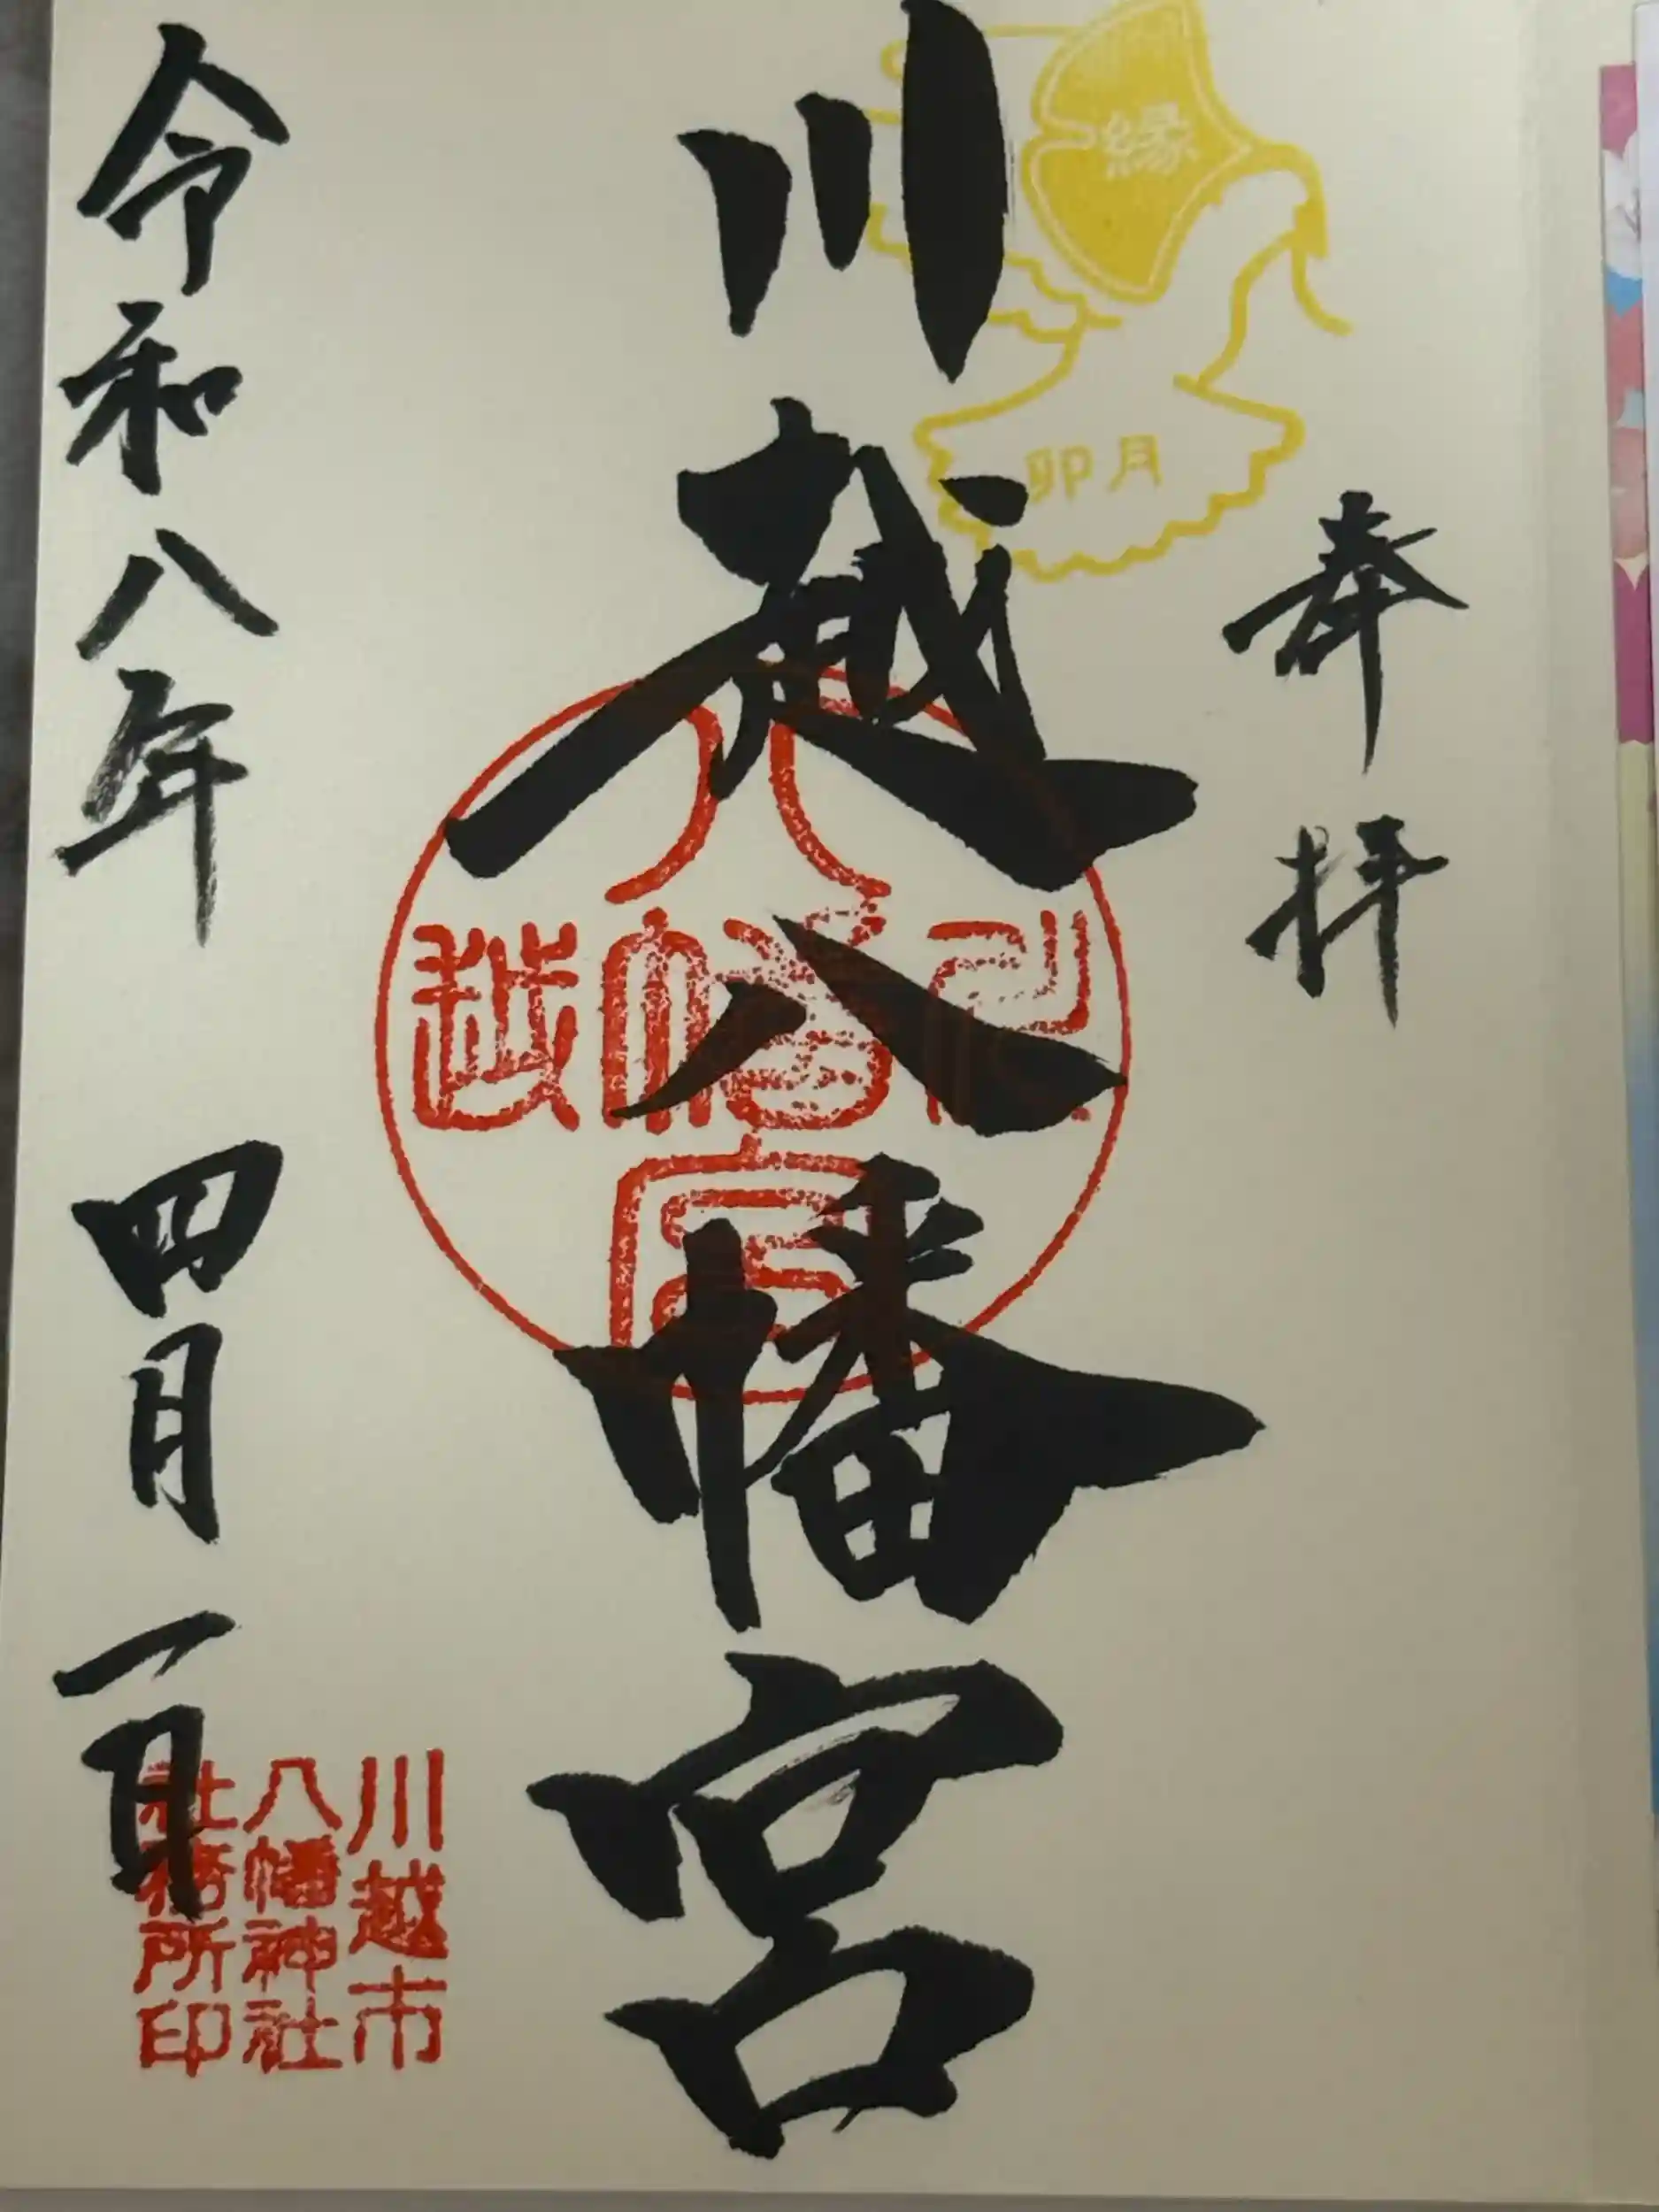 奉拝
縁
卯月
川越八幡宮
八幡宮
川越
川越市
八幡神社
社務所印
令和八年 四月 一日